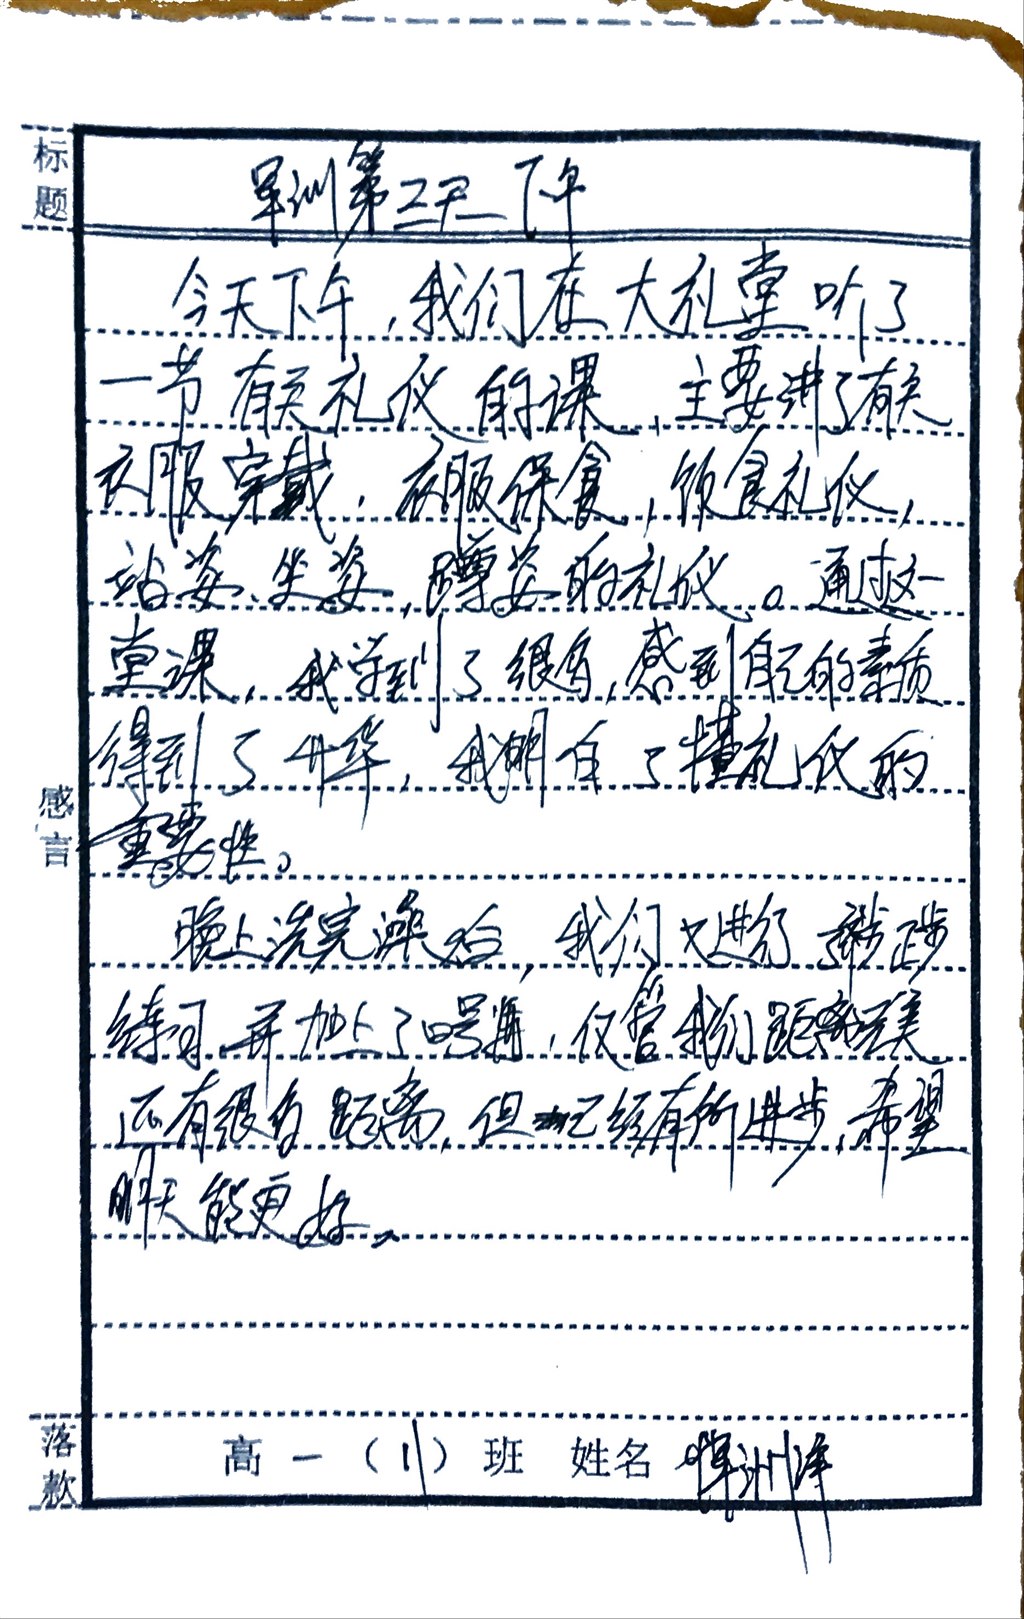 标题
军训第二天下午
今天下午，我们在大礼堂听了
一节有关礼仪的课，主要讲了有关
衣服穿戴，衣服保食，饮食礼仪，
站姿、坐姿，蹲姿的礼仪。通过这一
堂课，我学到了很多，感到自己的素质
得到了升华，我明白了懂礼仪的
重要性。
感言
晚上洗完澡后，我们又进行了 步
练习，并加上了口号，仅管我们距离完美
还有很多距离，但已经有所进步，希望
明天能更好。
落款
高一（11）班 姓名